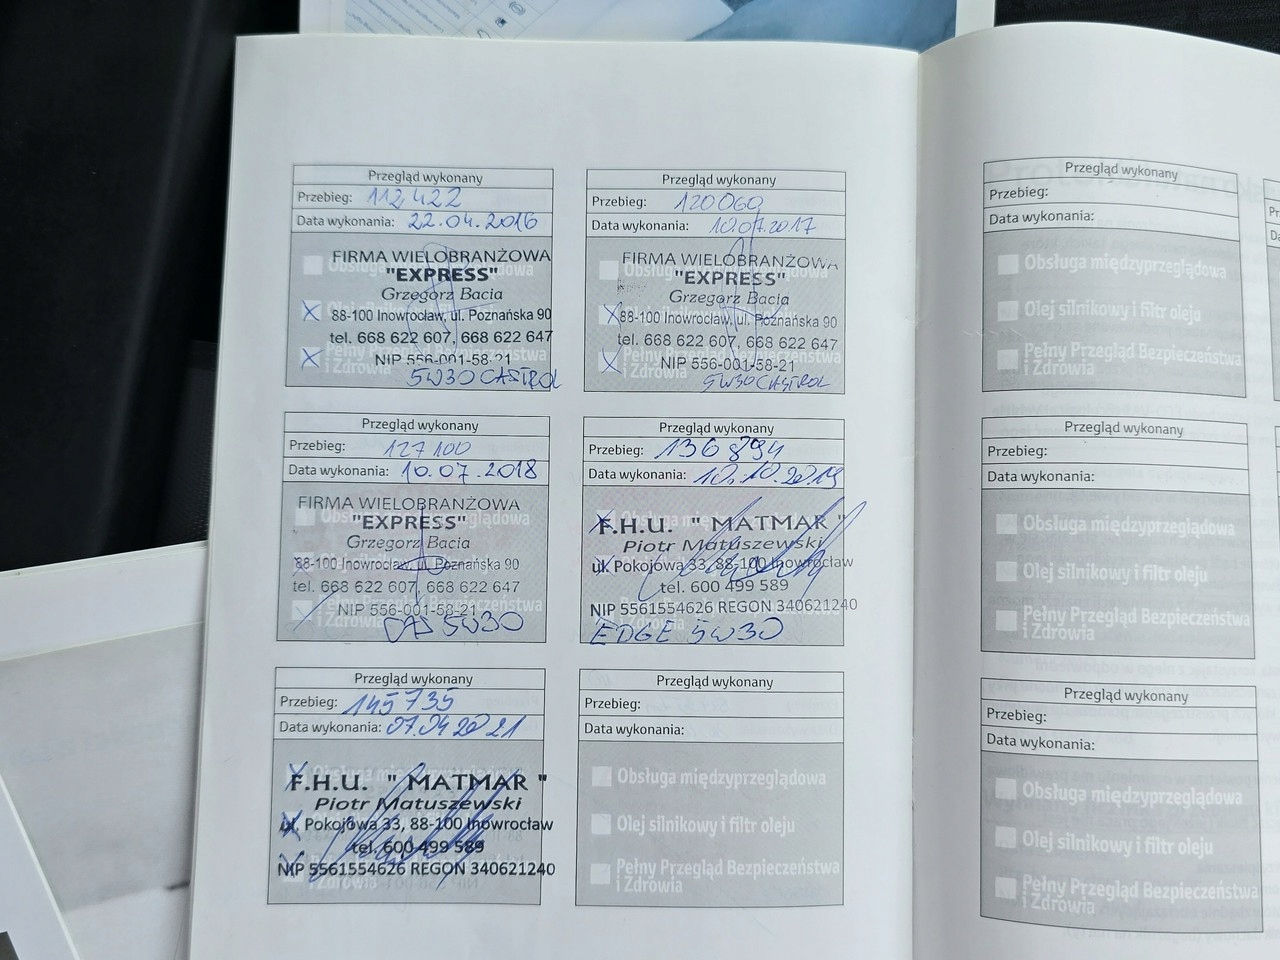 Przegląd wykonany
Przebieg: 112 422
Data wykonania: 22.04.2016
FIRMA WIELOBRANŻOWA
"EXPRESS"
Grzegorz Bacia
88-100 Inowrocław, ul. Poznańska 90
tel. 668 622 607, 668 622 647
NIP 556-001-58-21
Pełny Przegląd Bezpieczeństwa
i Zdrowia
5W30 CASTROL
Przegląd wykonany
Przebieg: 120060
Data wykonania: 10.07.2017
FIRMA WIELOBRANŻOWA
"EXPRESS"
Grzegorz Bacia
88-100 Inowrocław, ul. Poznańska 90
tel. 668 622 607, 668 622 647
NIP 556-001-58-21
i Zdrowia
5W30 CASTROL
Przegląd wykonany
Przebieg: 127 100
Data wykonania: 10.07.2018
FIRMA WIELOBRANŻOWA
"EXPRESS"
Grzegorz Bacia
88-100 Inowrocław, ul. Poznańska 90
tel. 668 622 607, 668 622 647
NIP 556-001-58-21
i Zdrowia
CAS 5W30
Przegląd wykonany
Przebieg: 136 894
Data wykonania: 10.10.2019
F.H.U. "MATMAR"
Piotr Matuszewski
ul. Pokojowa 33, 88-100 Inowrocław
tel. 600 499 589
NIP 5561554626 REGON 340621240
EDGE 5W30
Przegląd wykonany
Przebieg: 145735
Data wykonania: 07.04 2021
F.H.U. "MATMAR"
Piotr Matuszewski
ul. Pokojowa 33, 88-100 Inowrocław
tel. 600 499 589
NIP 5561554626 REGON 340621240
i Zdrowia
Przegląd wykonany
Przebieg:
Data wykonania:
Obsługa międzyprzeglądowa
Olej silnikowy i filtr oleju
Pełny Przegląd Bezpieczeństwa
i Zdrowia
Przegląd wykonany
Przebieg:
Data wykonania:
Obsługa międzyprzeglądowa
Olej silnikowy i filtr oleju
Pełny Przegląd Bezpieczeństwa
i Zdrowia
Przegląd wykonany
Przebieg:
Data wykonania:
Obsługa międzyprzeglądowa
Olej silnikowy i filtr oleju
Pełny Przegląd Bezpieczeństwa
i Zdrowia
Przegląd wykonany
Przebieg:
Data wykonania:
Obsługa międzyprzeglądowa
Olej silnikowy i filtr oleju
Pełny Przegląd Bezpieczeństwa
i Zdrowia